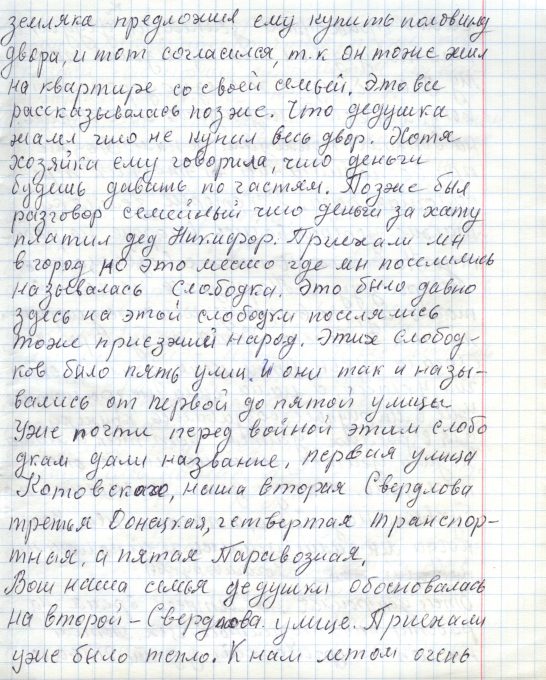 земляка предложил ему купить половину
двора, и тот согласился, т.к он тоже жил
на квартире со своей семьей. Это все
рассказывалась позже. Что дедушка
жалел что не купил весь двор. Хотя
хозяйка ему говорила, что деньги
будешь давать по частям. Позже был
разговор семейный что деньги за хату
платил дед Никифор. Приехали мы
в город но это место где мы поселились
называлась Слободка. Это было давно
здесь на этой слободки поселялись
тоже приезжий народ. Этих слобод-
ков было пять улиц. И они так и назы-
вались от первой до пятой улицы
Уже почти перед войной этим слобо
дкам дали название, первая улица
Котовского, наша вторая Свердлова
третья Донецкая, четвертая транспор-
тная, а пятая Паравозная.
Вот наша семья дедушки обосновалась
на второй - Свердлова улице. Приехали
уже было тепло. К нам летом очень